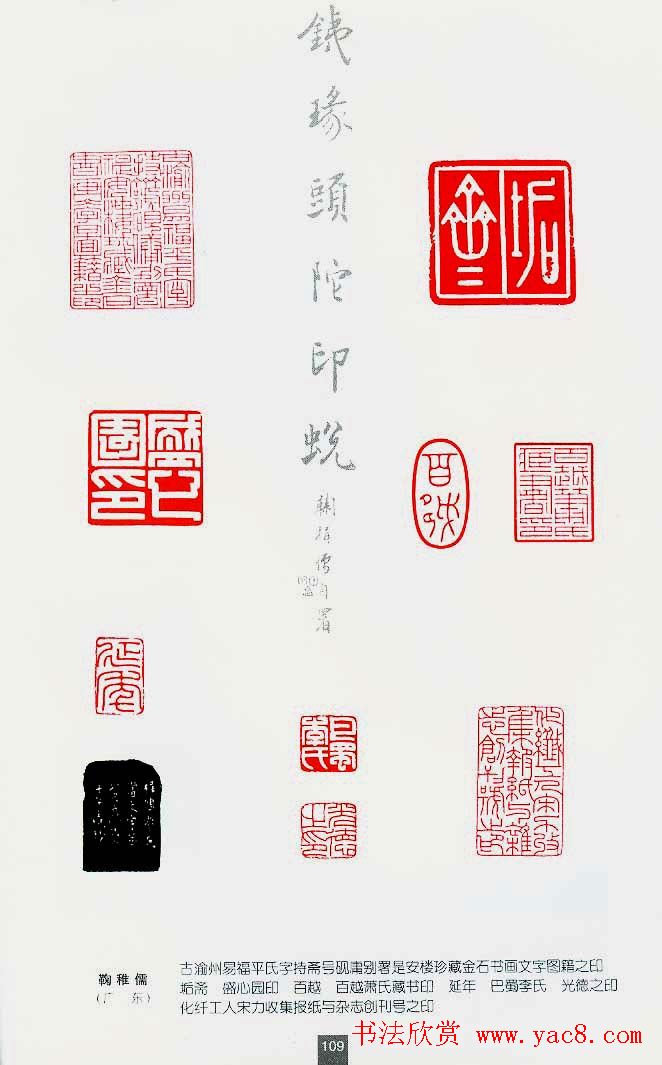 銕瑑頭陀印蜕
鞠稚儒自署
百越
延年
巴蜀李氏
光德之印
鞠稚儒
(广 东)
古渝州易福平氏字持斋号砚庸别署是安楼珍藏金石书画文字图籍之印
垢斋 盛心园印 百越 百越萧氏藏书印 延年 巴蜀李氏 光德之印
化纤工人宋力收集报纸与杂志创刊号之印
109
书法欣赏 www.yac8.com